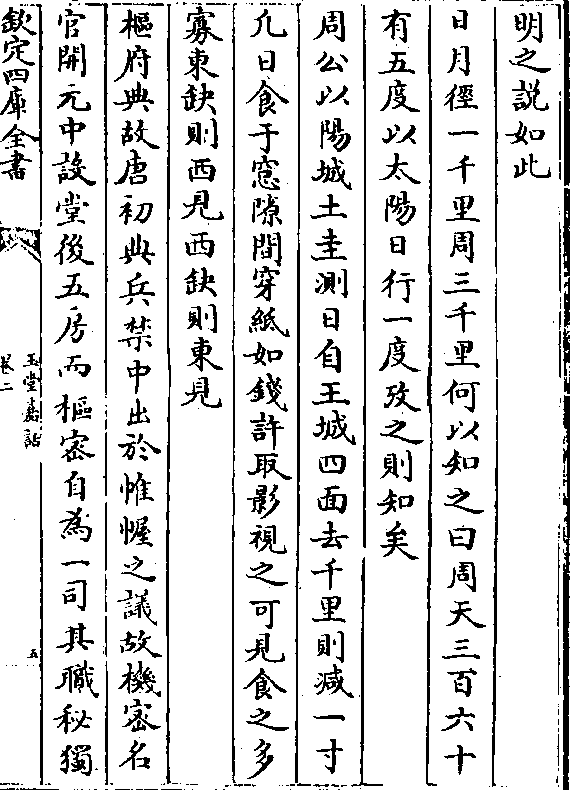 明之説如此
日月徑一千里周三千里何以知之曰周天三百六十
有五度以太陽日行一度攷之則知矣
周公以陽城土圭測日自王城四面去千里則減一寸
凢日食于窓隙間穿紙如錢許取影視之可見食之多
寡東缺則西見西缺則東見
樞府典故唐初典兵禁中出於帷幄之議故機宻名
官開元中設堂後五房而樞宻自為一司其職秘獨
欽定四庫全書
玉堂嘉話
卷二
五